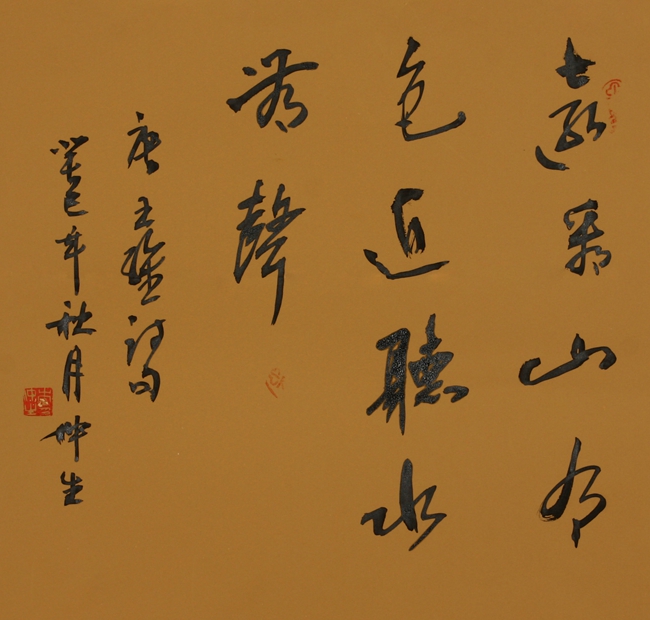 遠看山有
色近聽水
无聲
唐王維詩句
癸巳年秋月仲生